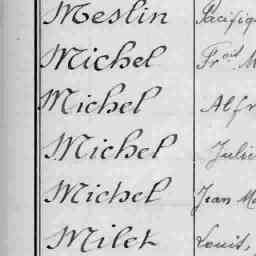 Meslin Pacifiq
Michel Fr.oit M
Michel Alfr
Michel Julie
Michel Jean Ma
Milet Louis,